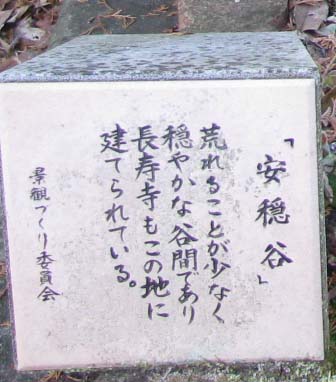 「安穏谷」
荒れることが少なく
穏やかな谷間であり
長寿寺もこの地に
建てられている。
景観つくり委員会